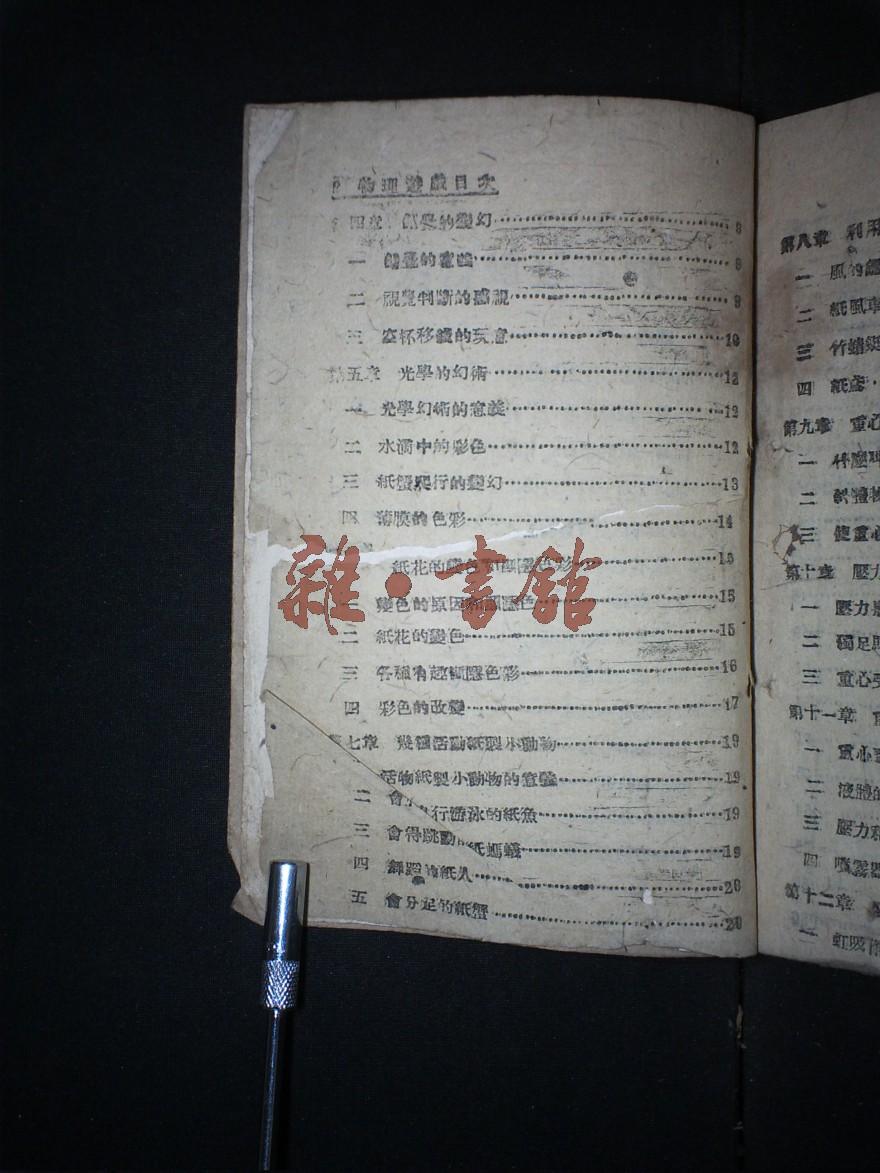 物理遊戲目次
四章 的變幻 8
一 錯覺的意義 8
二 視覺判斷的 視 9
三 空杯移 的玩意 10
第五章 光學的幻術 12
一 光學幻術的意義 12
二 水滴中的彩色 12
三 紙蟹爬行的變幻 13
四 薄膜的色彩 14
紙花的變色和 色彩 15
一 變色的原因和 色 15
二 紙花的變色 15
三 各種有趣 色彩 16
四 彩色的改變 17
第七章 幾種活動紙製小動物 19
活物紙製小動物的意義 19
二 會 行游泳的紙魚 19
三 會得跳動的紙螞蟻 19
四 舞蹈的紙人 20
五 會分足的紙蟹 20
雜·書館
第八章 利用
一 風的
二 紙風車
三 竹蜻蜓
四 紙鳶
第九章 重心
一 不
二 軟體
三 使重心
第十章 壓力
一 壓力
二 獨足
三 重心
第十一章
一 重心
二 液體的
三 壓力
四 噴霧器
第十二章
一 虹吸